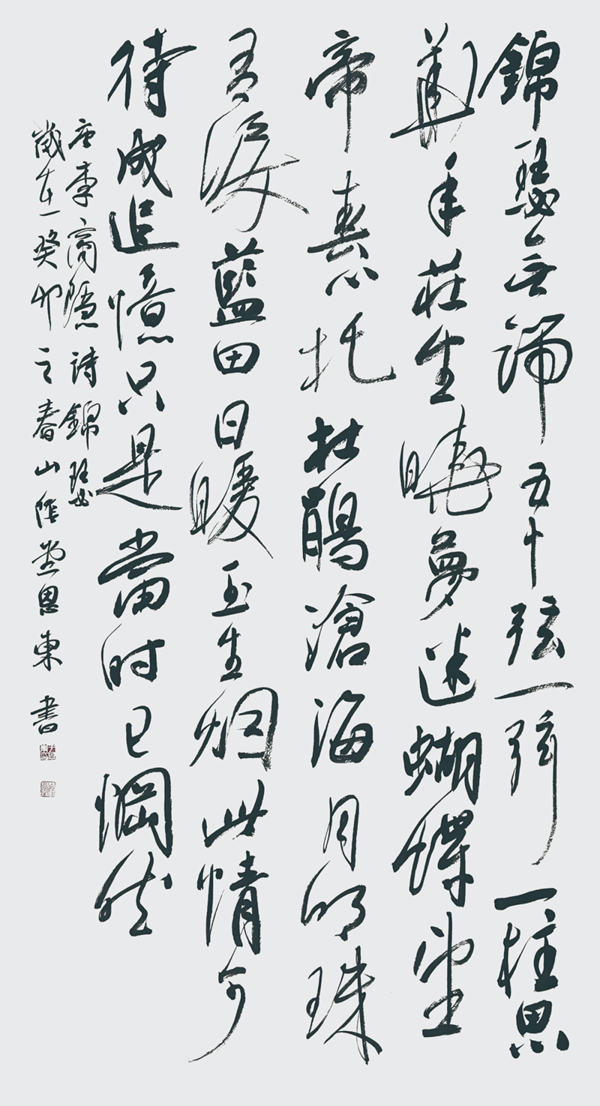 錦瑟无端五十弦一弦一柱思
華年莊生曉夢迷蝴蝶望
帝春心托杜鵑滄海月明珠
有淚藍田日暖玉生烟此情可
待成追憶只是當時已惘然
唐李商隱詩錦瑟
歲在癸卯之春山陰恩東書